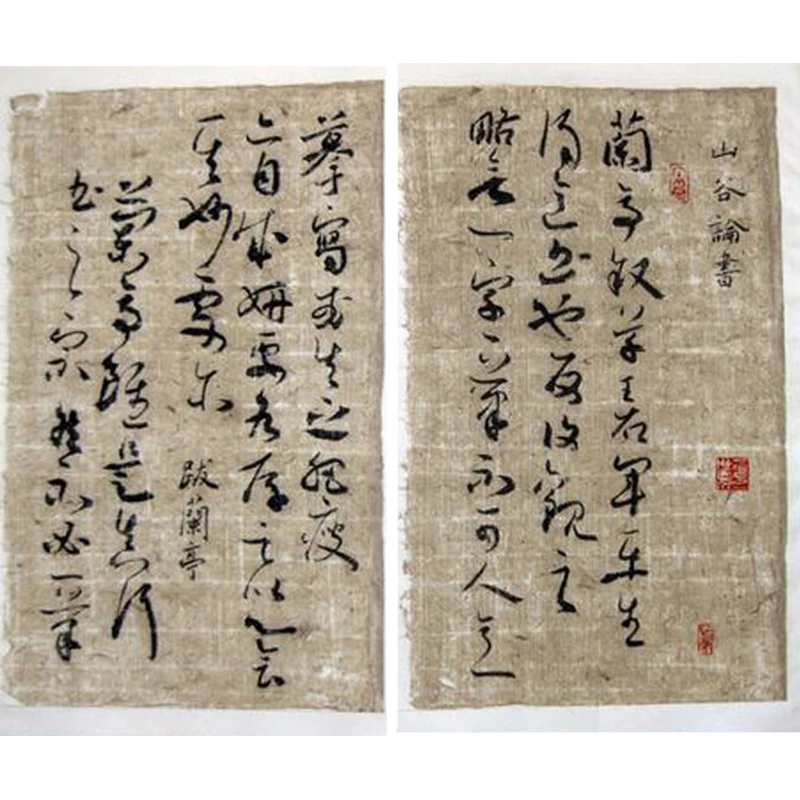 山谷論書
蘭亭叙草王右軍平生
得意書也反復觀之
略無一字一筆不可人意
摹寫或失之肥瘦
亦自成妍要各存之以心會
其妙處尔
跋蘭亭
蘭亭雖是真行
書之宗然不必一筆